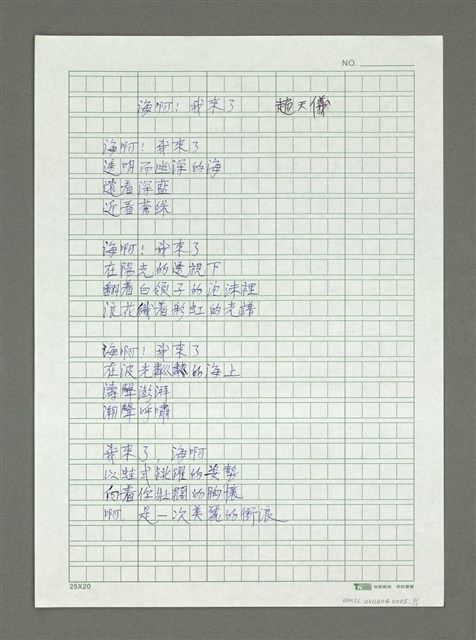 NO.
海啊！我來了 趙天儀
海啊！我來了
透明而幽深的海
遠看深藍
近看翠綠
海啊！我來了
在陽光的透視下
翻著白領子的泡沫裡
浪花織著彩虹的光譜
海啊！我來了
在波光粼粼的海上
濤聲澎湃
潮聲呼嘯
我來了，海啊
以蛙式跳躍的姿勢
向著你壯闊的胸懷
啊 是一次美麗的衝浪
25X20